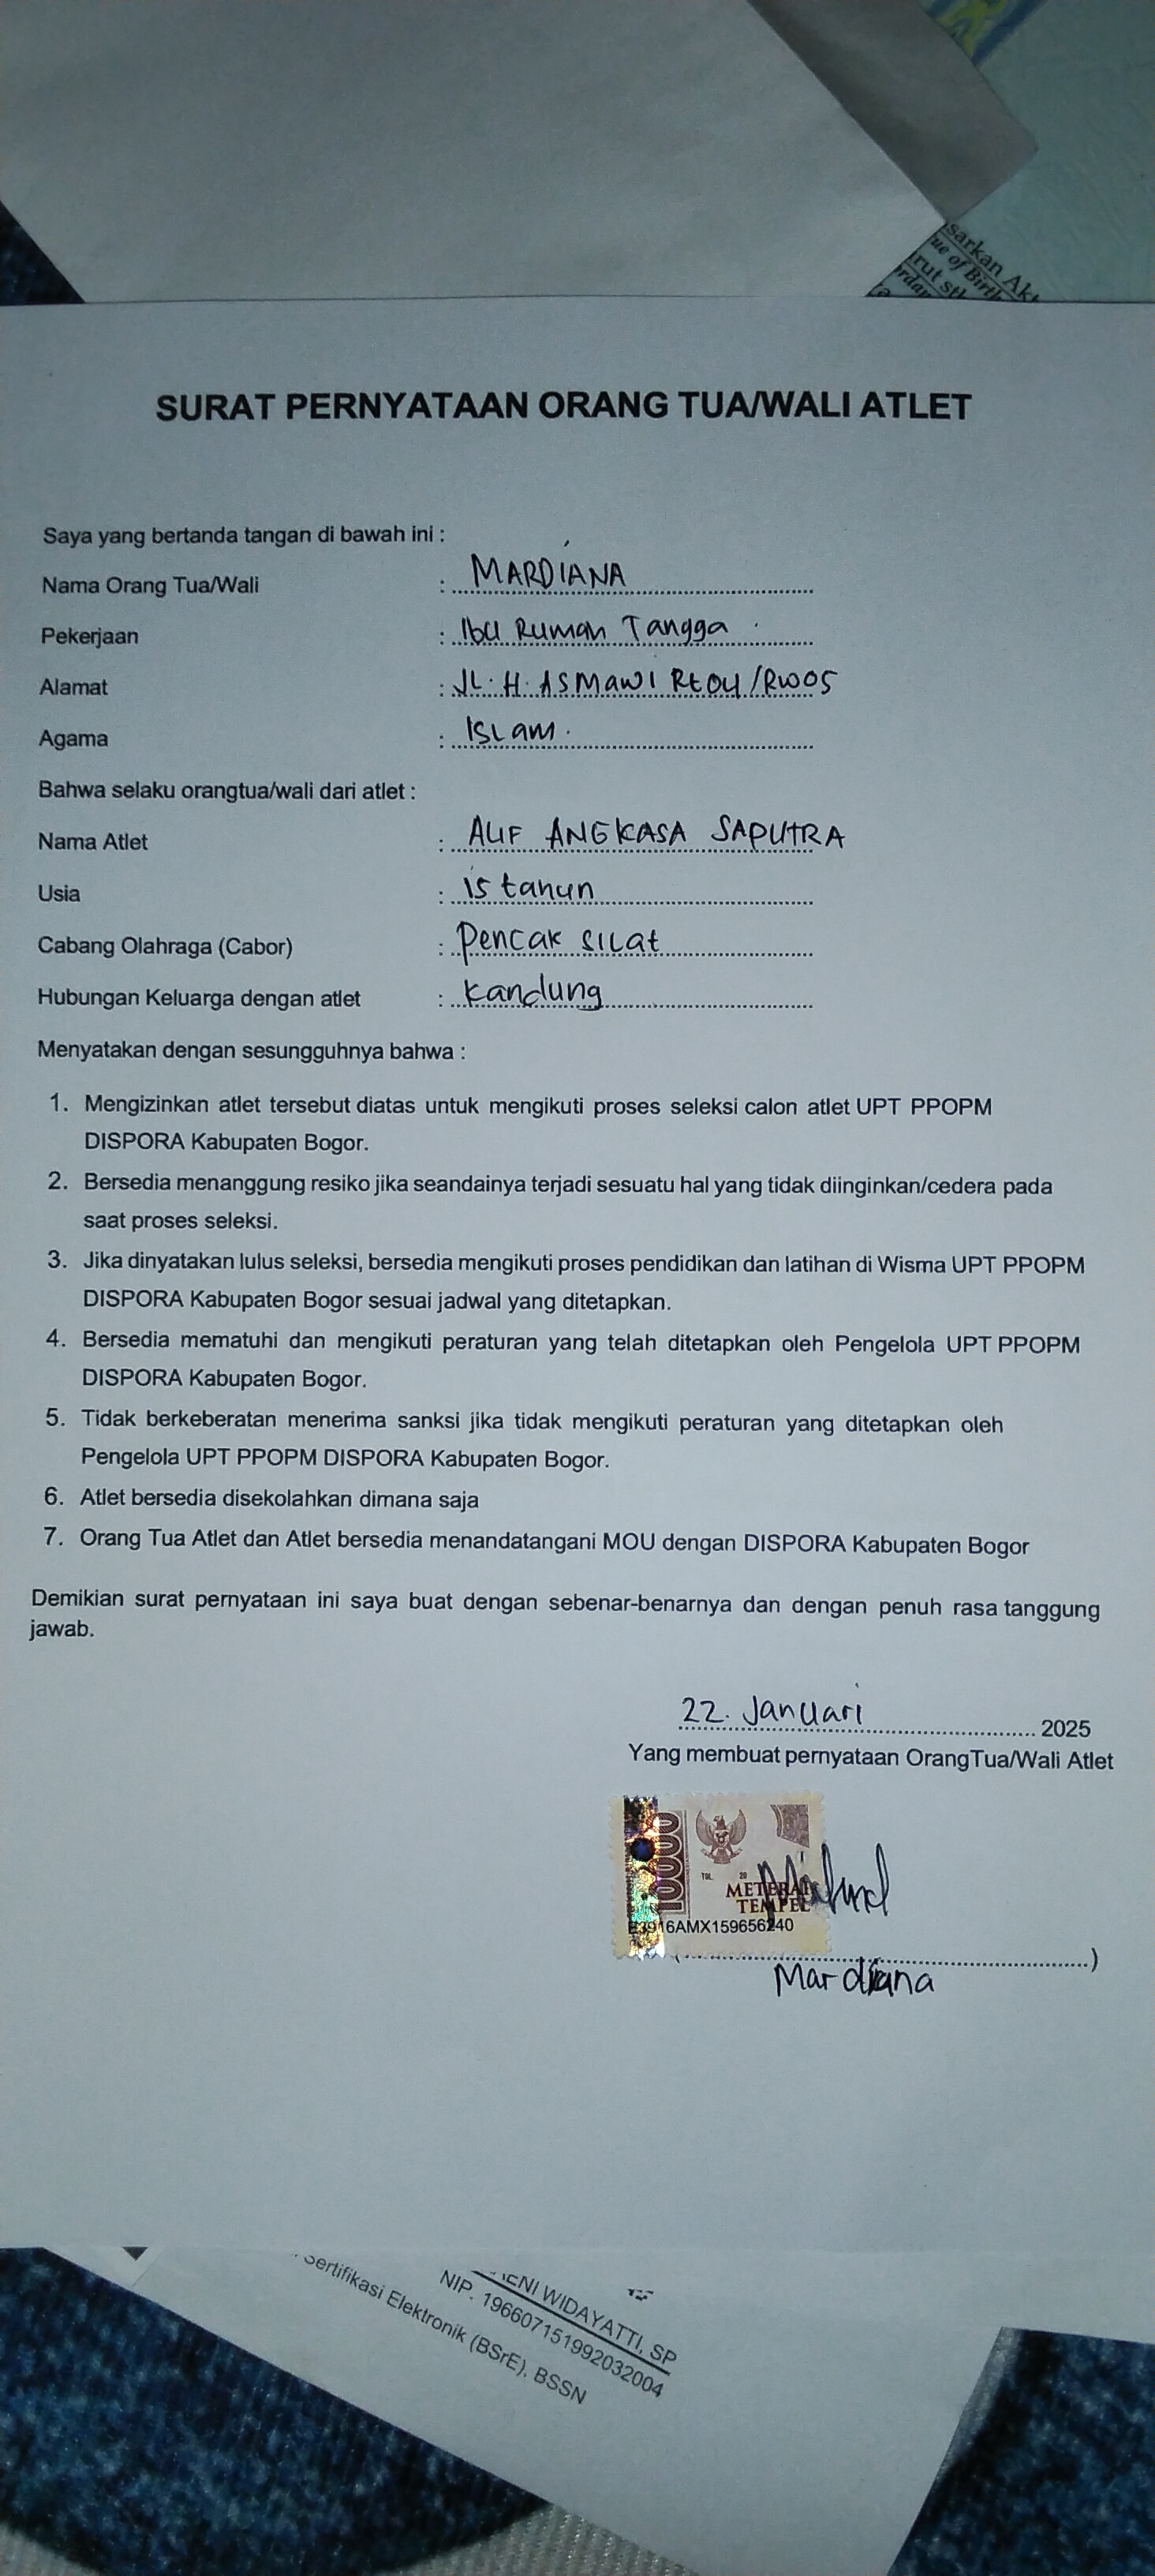 sarkan Akt
ue of Birth
irut st
rdan
SURAT PERNYATAAN ORANG TUA/WALI ATLET
Saya yang bertanda tangan di bawah ini :
Nama Orang Tua/Wali : MARDIANA
Pekerjaan : Ibu Rumah Tangga
Alamat : JL. H. ASMAWI Rt04/RW05
Agama : ISLam.
Bahwa selaku orangtua/wali dari atlet :
Nama Atlet : ALIF ANGKASA SAPUTRA
Usia : 15 tahun
Cabang Olahraga (Cabor) : Pencak SILat
Hubungan Keluarga dengan atlet : Kandung
Menyatakan dengan sesungguhnya bahwa :
1. Mengizinkan atlet tersebut diatas untuk mengikuti proses seleksi calon atlet UPT PPOPM
DISPORA Kabupaten Bogor.
2. Bersedia menanggung resiko jika seandainya terjadi sesuatu hal yang tidak diinginkan/cedera pada
saat proses seleksi.
3. Jika dinyatakan lulus seleksi, bersedia mengikuti proses pendidikan dan latihan di Wisma UPT PPOPM
DISPORA Kabupaten Bogor sesuai jadwal yang ditetapkan.
4. Bersedia mematuhi dan mengikuti peraturan yang telah ditetapkan oleh Pengelola UPT PPOPM
DISPORA Kabupaten Bogor.
5. Tidak berkeberatan menerima sanksi jika tidak mengikuti peraturan yang ditetapkan oleh
Pengelola UPT PPOPM DISPORA Kabupaten Bogor.
6. Atlet bersedia disekolahkan dimana saja
7. Orang Tua Atlet dan Atlet bersedia menandatangani MOU dengan DISPORA Kabupaten Bogor
Demikian surat pernyataan ini saya buat dengan sebenar-benarnya dan dengan penuh rasa tanggung
jawab.
22. Januari 2025
Yang membuat pernyataan OrangTua/Wali Atlet
10000
TGL. 20
METERAI
TEMPEL
E3916AMX159656240
(....)
Mardiana
ENI WIDAYATTI, SP
NIP. 196607151992032004
Sertifikasi Elektronik (BSrE), BSSN